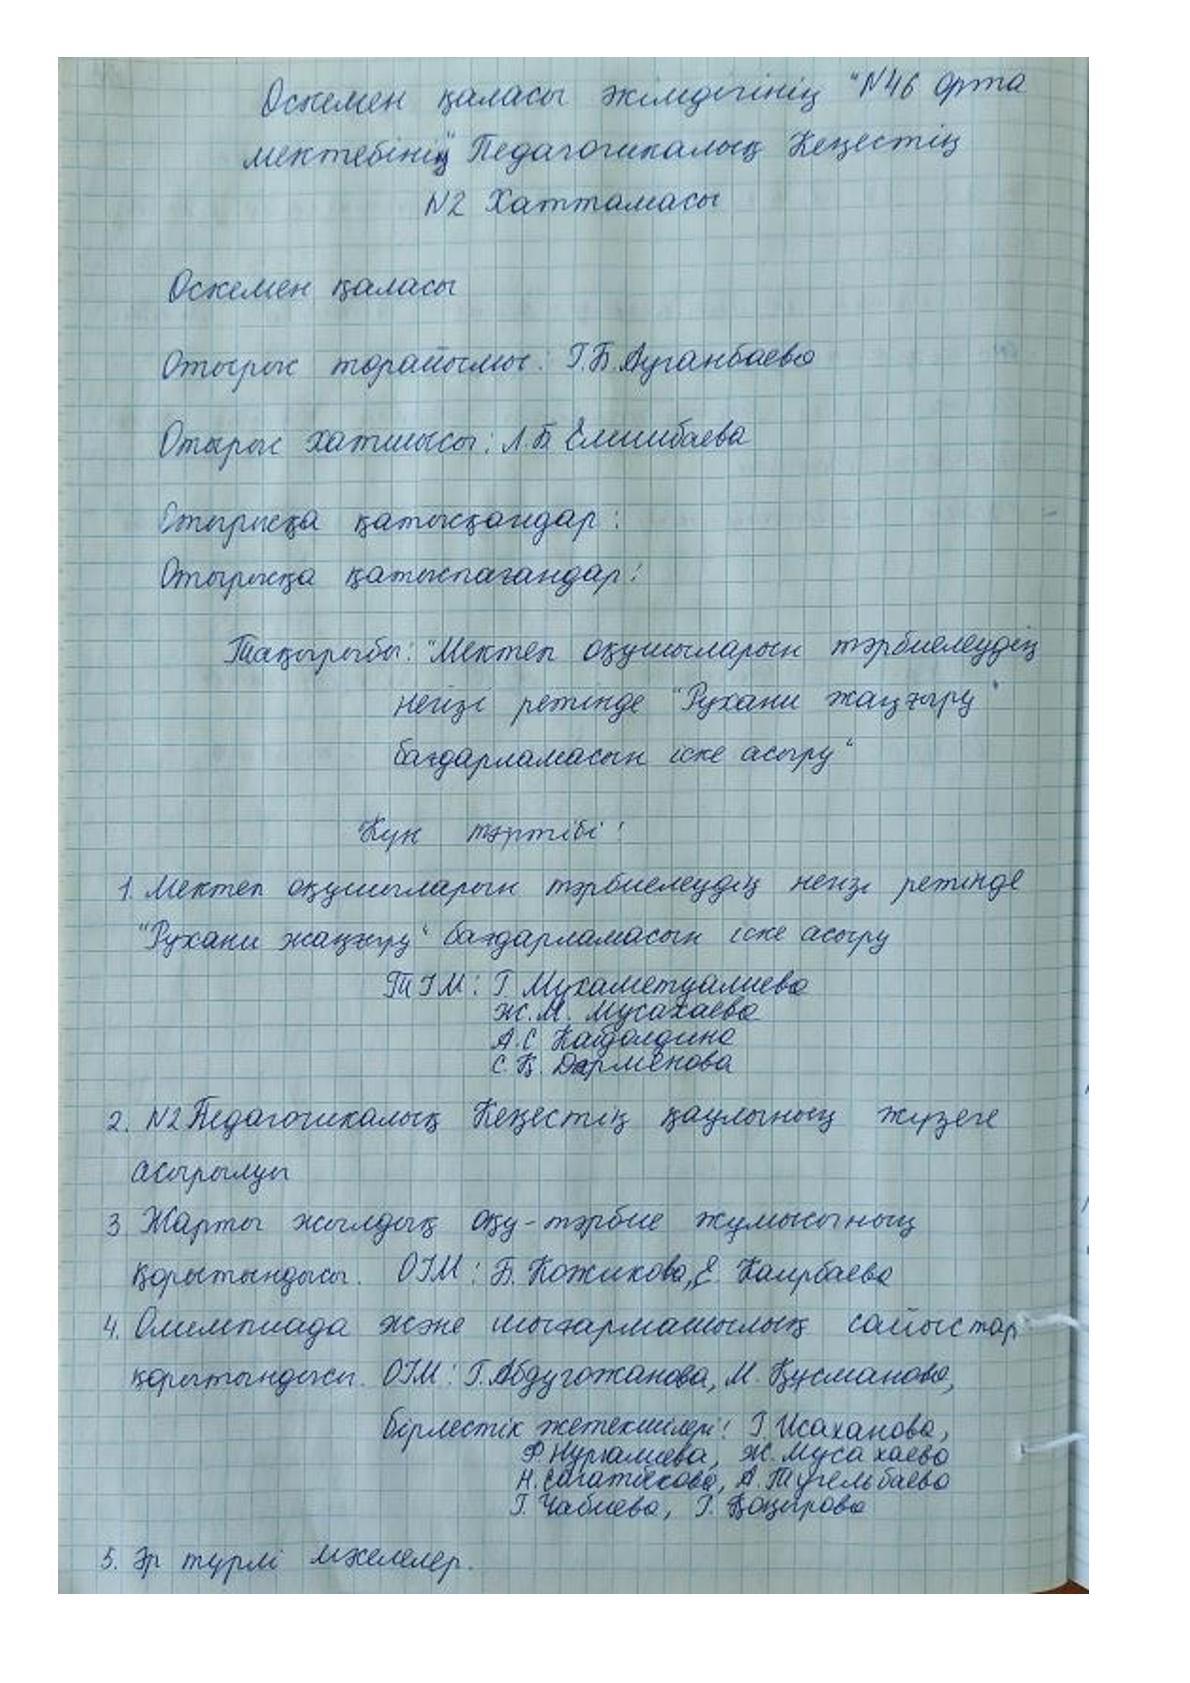 Өскемен қаласы әкімдігінің "N46 орта
мектебінің" Педагогикалық Кеңестің
N2 Хаттамасы
Өскемен қаласы
Отырыс төрайымы: Г.Б.Ауганбаева
Отырыс хатшысы: Л.Б Елшибаева
Отырысқа қатысқандар:
Отырысқа қатыспағандар:
Тақырыбы: "Мектеп оқушыларын тәрбиелеудің
негізі ретінде "Рухани жаңғыру"
бағдарламасын іске асыру"
Күн тәртібі:
1. Мектеп оқушыларын тәрбиелеудің негізі ретінде
"Рухани жаңғыру" бағдарламасын іске асыру
ТІМ: Г Мухаметуалиева
Ж.М. Мусахаева
А.С
С.Қ. Дәрменова
2. N2 Педагогикалық Кеңестің қаулының жүзеге
асырылуы
3 Жарты жылдық оқу-тәрбие жұмысының
қорытындысы. ОІМ: Б. Кожикова, Е. Каирбаева
4. Олимпиада және шығармашылық сайыстар
қорытындысы. ОІМ: Г.Абдугожанова, М. Құсманова,
бірлестік жетекшілері: Г.Исаханова,
Ф.Нурғалиева, Ж.Мусахаева
Н.Сағатбекова, А.Түгельбаева
Г.Чабиева, Г.
5. Әр түрлі мәселелер.